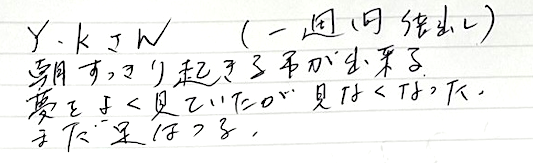 Y.KさW (一週間後出し)
朝すっきり起きる事が出来る
夢をよく見ていたが見なくなった.
まだ足はつる.